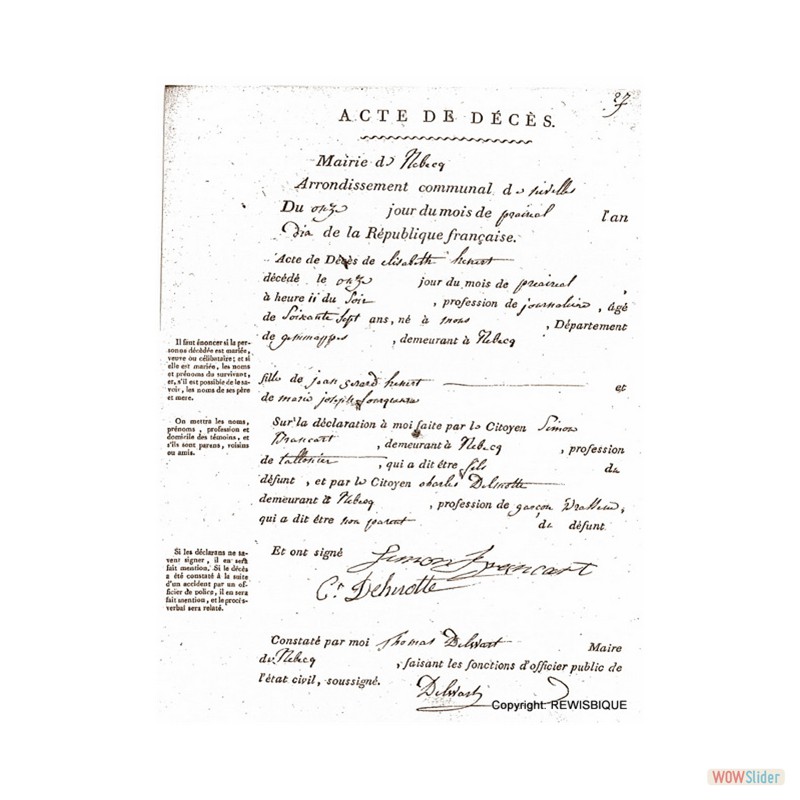 27
ACTE DE DÉCÈS.
Mairie de Rebecq
Arrondissement communal de nivelles
Du onze jour du mois de prairial l'an
Dix de la République française.
Acte de Décès de elisabeth henert
décédé le onze jour du mois de preairial,
à heure ii du Soir, profession de journaliere, âgé
de Soixante Sept ans, né à mons, Département
de gemmappes, demeurant à Rebecq
Il faut énoncer si la per-
sonne décédée est mariée,
veuve ou célibataire; et si
elle est mariée, les noms
et prénoms du survivant,
et, s'il est possible de le sa-
voir, les noms de ses père
et mere.
fille de jean gerard henert et
de marie joseph
On mettra les noms,
prénoms, profession et
domicile des témoins, et
s'ils sont parens, voisins
ou amis.
Sur la déclaration à moi faite par le Citoyen Simon
Brancart, demeurant à Rebecq, profession
de, qui a dit être fils du
défunt, et par le Citoyen charles Delmotte
demeurant à Rebecq, profession de garçon Brasseur,
qui a dit être non parent du défunt
Si les déclarans ne sa-
vent signer, il en sera
fait mention. Si le décès
a été constaté à la suite
d'un accident par un of-
ficier de police, il en sera
fait mention, et le procès-
verbal sera relaté.
Et ont signé Simon Brancart
C.r Delmotte
Constaté par moi Thomas Delwart Maire
de Rebecq, faisant les fonctions d'officier public de
l'état civil, soussigné.
Delwart
Copyright: REWISBIQUE
WOWSlider